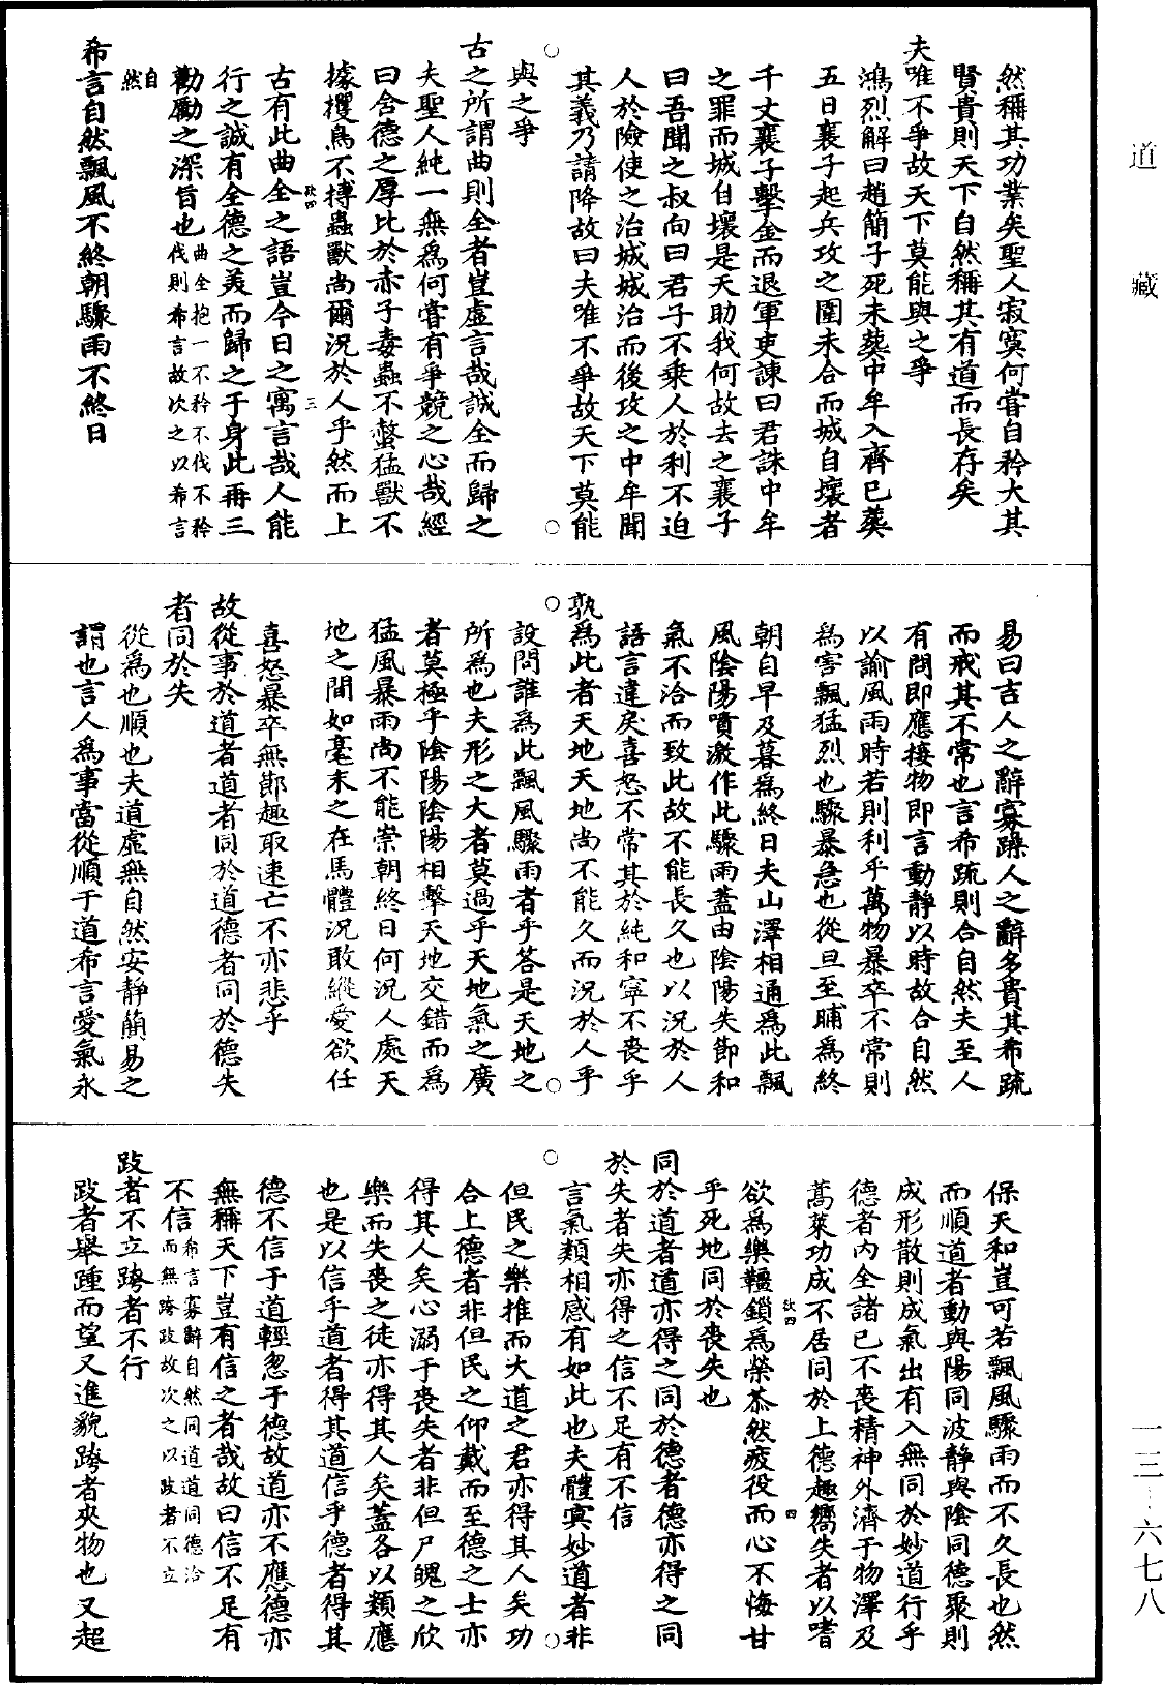 道藏
一三—六七八
然稱其功業矣聖人寂寞何嘗自矜大其
賢貴則天下自然稱其有道而長存矣
夫唯不爭故天下莫能與之爭
鴻烈解曰趙簡子死未葬中牟入齊已葬
五日襄子起兵攻之圍未合而城自壞者
千丈襄子擊金而退軍吏諫曰君誅中牟
之罪而城自壞是天助我何故去之襄子
曰吾聞之叔向曰君子不乘人於利不迫
人於險使之治城城治而後攻之中牟聞
其義乃請降故曰夫唯不爭故天下莫能
與之爭
古之所謂曲則全者豈虛言哉誠全而歸之
夫聖人純一無為何嘗有爭競之心哉經
曰含德之厚比於赤子毒蟲不螫猛獸不
據攫鳥不摶蟲獸尚爾況於人乎然而上
古有此曲全之語豈今日之寓言哉人能
行之誠有全德之美而歸之于身此再三
勸勵之深旨也曲全抱一不矜不伐不矜
伐則希言故次之以希言
自
然
希言自然飄風不終朝驟雨不終日
易曰吉人之辭寡躁人之辭多貴其希疏
而戒其不常也言希疏則合自然夫至人
有問即應接物即言動靜以時故合自然
以諭風雨時若則利乎萬物暴卒不常則
為害飄猛烈也驟暴急也從旦至晡為終
朝自早及暮為終日夫山澤相通為此飄
風陰陽噴激作此驟雨蓋由陰陽失節和
氣不洽而致此故不能長久也以況於人
語言違戾喜怒不常其於純和寧不喪乎
孰為此者天地天地尚不能久而況於人乎
設問誰為此飄風驟雨者乎答是天地之
所為也夫形之大者莫過乎天地氣之廣
者莫極乎陰陽陰陽相擊天地交錯而為
猛風暴雨尚不能崇朝終日何況人處天
地之間如毫末之在馬體況敢縱愛欲任
喜怒暴卒無鄣趣取速亡不亦悲乎
故從事於道者道者同於道德者同於德失
者同於失
從為也順也夫道虛無自然安靜簡易之
謂也言人為事當從順于道希言愛氣永
保天和豈可若飄風驟雨而不久長也然
而順道者動與陽同波靜與陰同德聚則
成形散則成氣出有入無同於妙道行乎
德者內全諸已不喪精神外濟于物澤及
蒿萊功成不居同於上德趣嚮失者以嗜
欲為樂韁鎖為榮苶然疲役而心不悔甘
乎死地同於喪失也
同於道者道亦得之同於德者德亦得之同
於失者失亦得之信不足有不信
言氣類相感有如此也夫體冥妙道者非
但民之樂推而大道之君亦得其人矣功
合上德者非但民之仰戴而至德之士亦
得其人矣心溺于喪失者非但尸魄之欣
樂而失喪之徒亦得其人矣蓋各以類應
也是以信乎道者得其道信乎德者得其
德不信于道輕忽于德故道亦不應德亦
無稱天下豈有信之者哉故曰信不足有
不信希言寡辭自然同道道同德洽
而無跨跂故次之以跂者不立
跂者不立跨者不行
跂者舉踵而望又進貌跨者夾物也又超